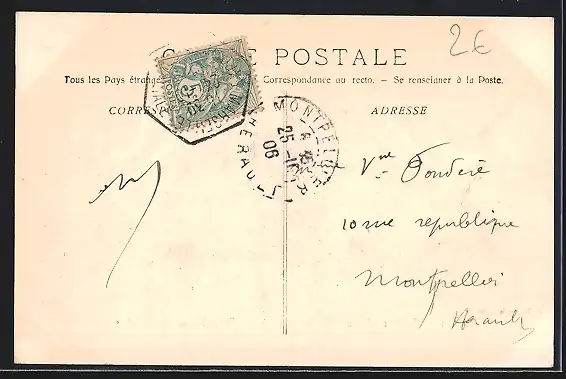 CARTE POSTALE
2€
Tous les Pays étrangers Correspondance au recto. — Se renseigner à la Poste.
CORRESP
ADRESSE
MONTPELLIER
25
06
HERAULT
Vve Fondère
10 rue republique
Montpellier
Herault